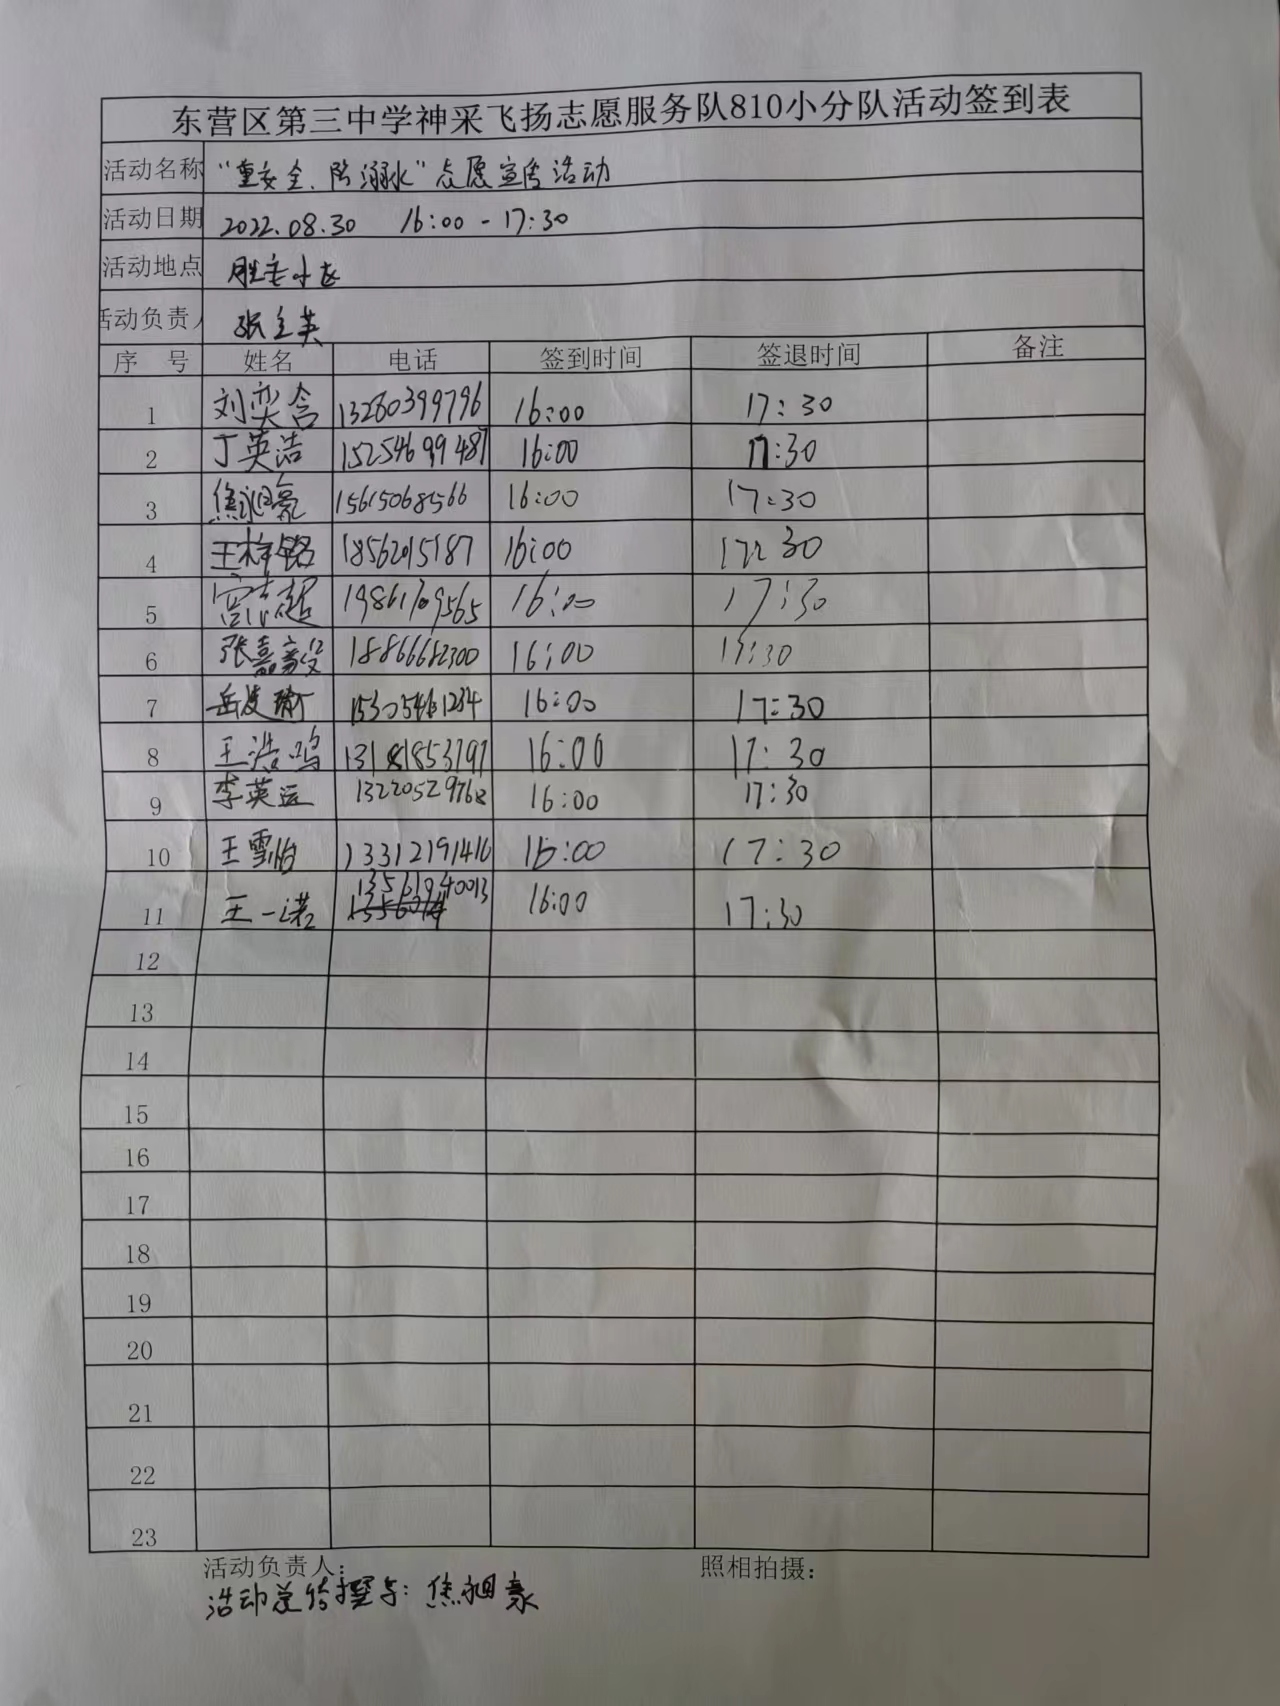 东营区第三中学神采飞扬志愿服务队810小分队活动签到表
活动名称 “重安全、防溺水”志愿宣传活动
活动日期 2022.08.30 16:00-17:30
活动地点 胜宏小区
活动负责人 张立英
序 号 姓名 电话 签到时间 签退时间 备注
1 刘奕含 13280399796 16:00 17:30
2 丁英浩 15254699487 16:00 17:30
3 焦昶豪 15615068566 16:00 17:30
4 王梓铭 18562015187 16:00 17:30
5 宫志超 19861709565 16:00 17:30
6 张嘉毅 18866682300 16:00 17:30
7 岳 15305461234 16:00 17:30
8 王浩鸣 13181853797 16:00 17:30
9 李英远 13220529768 16:00 17:30
10 王雪怡 13312191416 16:00 17:30
11 王一诺 13561940013 16:00 17:30
12
13
14
15
16
17
18
19
20
21
22
23
活动负责人: 照相拍摄:
活动宣传撰写: 焦昶豪